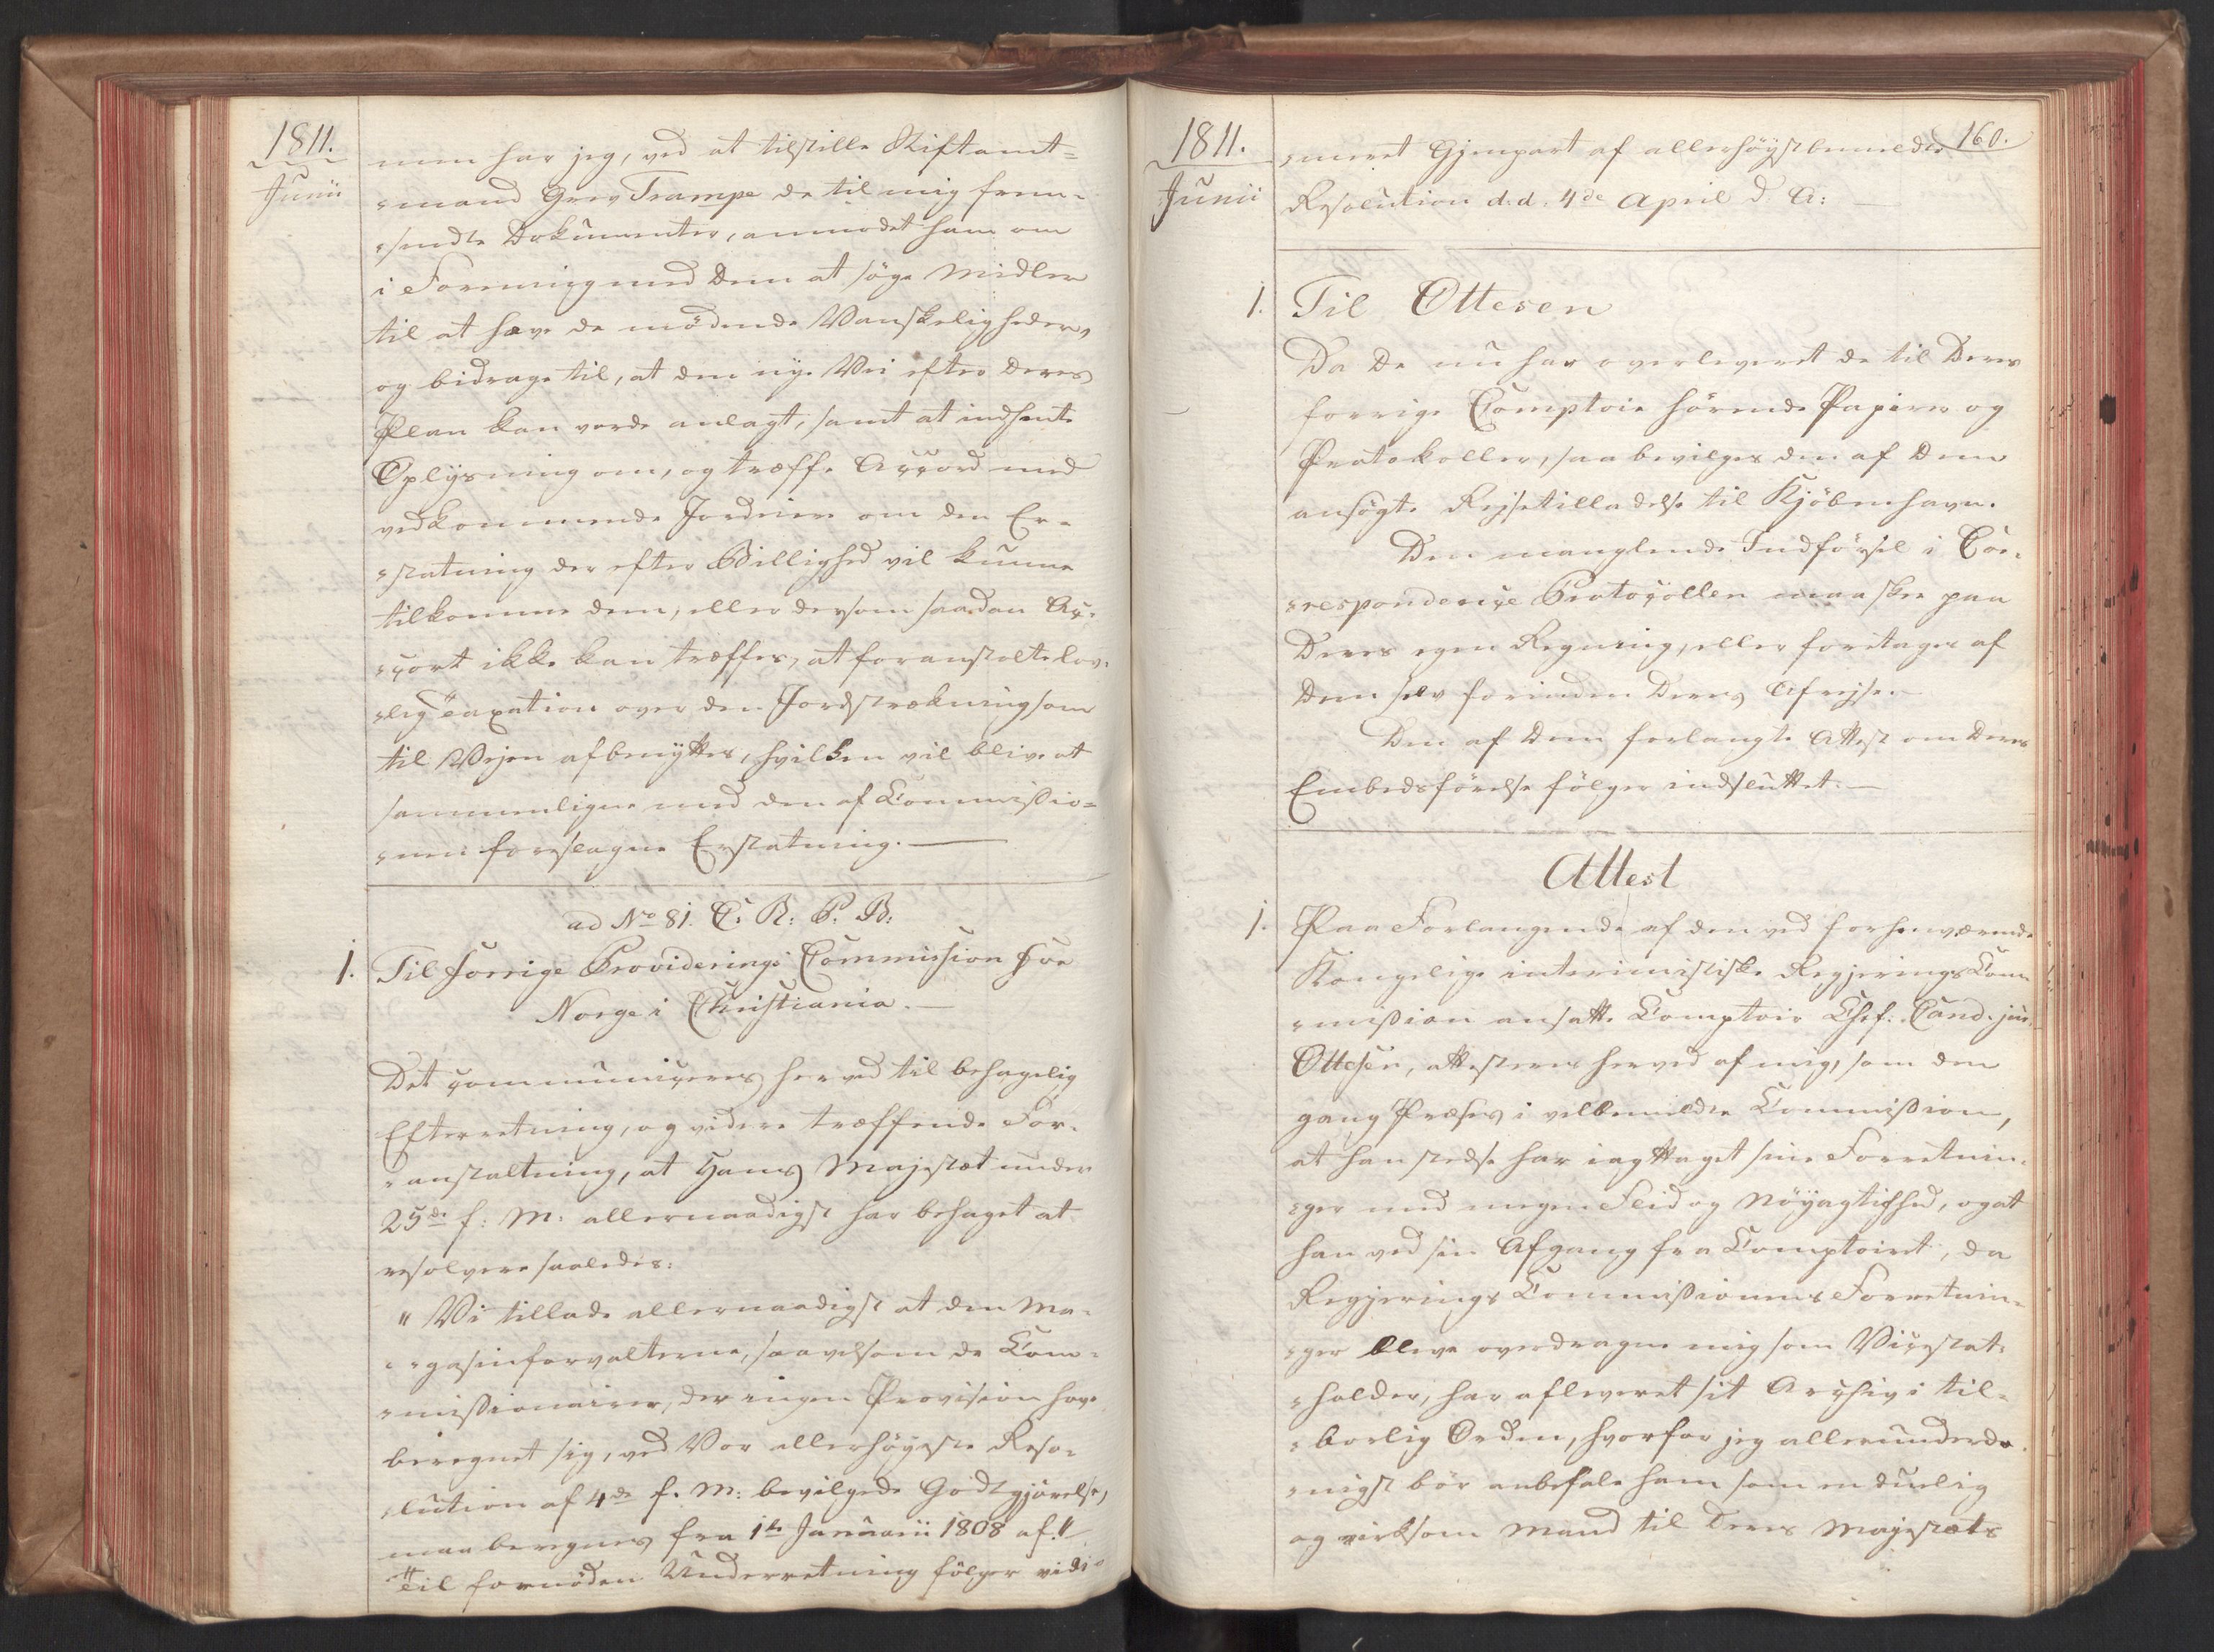 1811.
Junii
men har jeg, ved at tilstille Stiftamt=
=mand Grev Trampe de til mig frem=
=sendte Dokumenter, anmodet ham om
i Forening med Dem at söge Midler
til at hæve de mödende Vanskeligheder,
og bidrage til, at den nye Vei efter Deres
Plan kan vorde anlagt, samt at indhente
Oplysning om, og træffe Accord med
vedkommende Jordeiere om den Er=
=statning der efter Billighed vil kunne
tilkomme dem, eller dersom saadan Ac=
=cort ikke kan træffes, at foranstalte lov=
=lig Taxation over den Jordstrækning som
til Vejen afbenyttes, hvilken vil blive at
sammenligne med den af Commissio=
=nen foreslagne Erstatning. —
ad No 81. C. R: P. B:
1. Til forrige Providerings Commission for
Norge i Christiania. —
Det communiceres herved til behagelig
Efterretning, og videre træffende For=
=anstaltning, at Hans Majestæt under
25de f: M: allernaadigst har behaget at
resolvere saaledes:
" Vi tillade allernaadigst at den Ma=
=gasinforvalterne, saavelsom de Com=
=missionairer, der ingen Provision have
beregnet sig, ved Vor allerhöyeste Reso=
=lution af 4de f. M: bevilgede Godtgjörelse,
maa beregnes fra 1te Januarii 1808 af."
Til fornöden Underretning fölger vidi=
1811.
Junii
160.
=meret Gjenpart af allerhöystbemeldte
Resolution d. d. 4de April d. A: —
1. Til Ottesen
Da De nu har overleveret de til Deres
forrige Comptoir hörende Papirer og
Protokoller, saa bevilges den af Dem
ansögte Rejsetilladelse til Kjöbenhavn.
Den manglende Indförsel i Cor=
=respondence Protocollen maa skee paa
Deres egen Regning, eller foretages af
Dem selv forinden Deres Afrejse. —
Den af Dem forlangte Attest om Deres
Embedsförelse fölger indsluttet. —
Attest
1. Paa Forlangende af den ved forhenværende
Kongelige interimistiske Regjerings Com=
=mission ansatte Comptoir Chef: Cand. jur.
Ottesen, attesteres herved af mig, som den
gang Præses i velbemeldte Commission,
at han stedse har iagttaget sine Forretnin=
=ger med megen Fliid og Nöyagtighed, og at
han ved sin Afgang fra Comptoiret, da
Regjerings Commissionens Forretnin=
=ger bleve overdragne mig som Vicestat=
=holder, har afleveret sit Archiv i til=
=börlig Orden, hvorfor jeg allerunderda=
=nigst bör anbefale ham som en duelig
og virksom Mand til Deres Majestæts